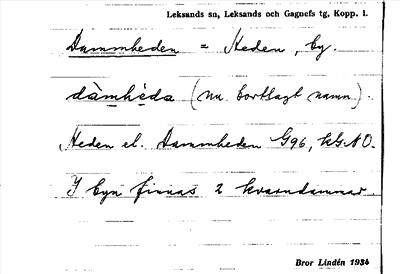 Leksands sn, Leksands och Gagnefs tg, Kopp. l.
Dammheden = Heden, by.
dàmhèda (nu bortlagt namn).
Heden el. Dammheden G96, KG.NO.
I byn finnas 2 kvarndammar.
Bror Lindén 1934